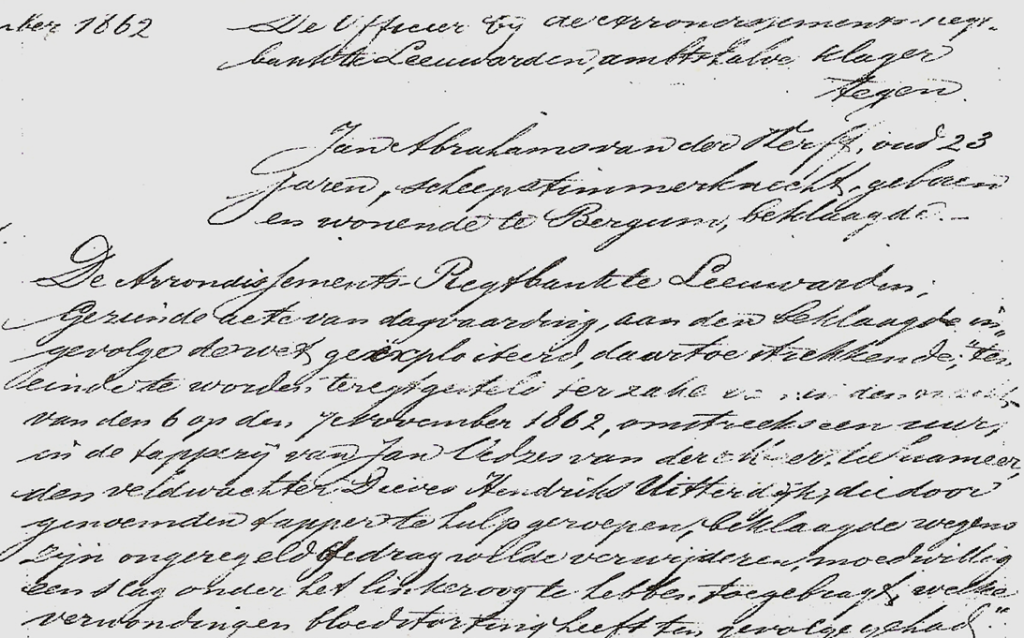 mber 1862
De Officier bij de Arrondissements-regt-
bank te Leeuwarden, ambtshalve klager
tegen
Jan Abrahams van der Werff, oud 23
jaren, scheepstimmerknecht, geboren
en wonende te Bergum, beklaagde.-
De Arrondissements-Regtbank te Leeuwarden;
Gezien de acte van dagvaarding, aan den beklaagde in
gevolge de wet geëxploiteerd, daartoe strekkende; "ten
einde te worden teregtgesteld ter zake in den
van den 6 op den 7 November 1862, omstreeks een uur,
in de tapperij van Jan van der Meer te Hameer,
den veldwachter Dieves Hendriks Uitterdijk, die door
genoemden tapper te hulp geroepen, beklaagde wegens
zijn ongeregeld gedrag wilde verwijderen, moedwillig
een slag onder het linkeroog te hebben toegebragt, welke
verwondingen bloedstorting heeft ten gevolge gehad."